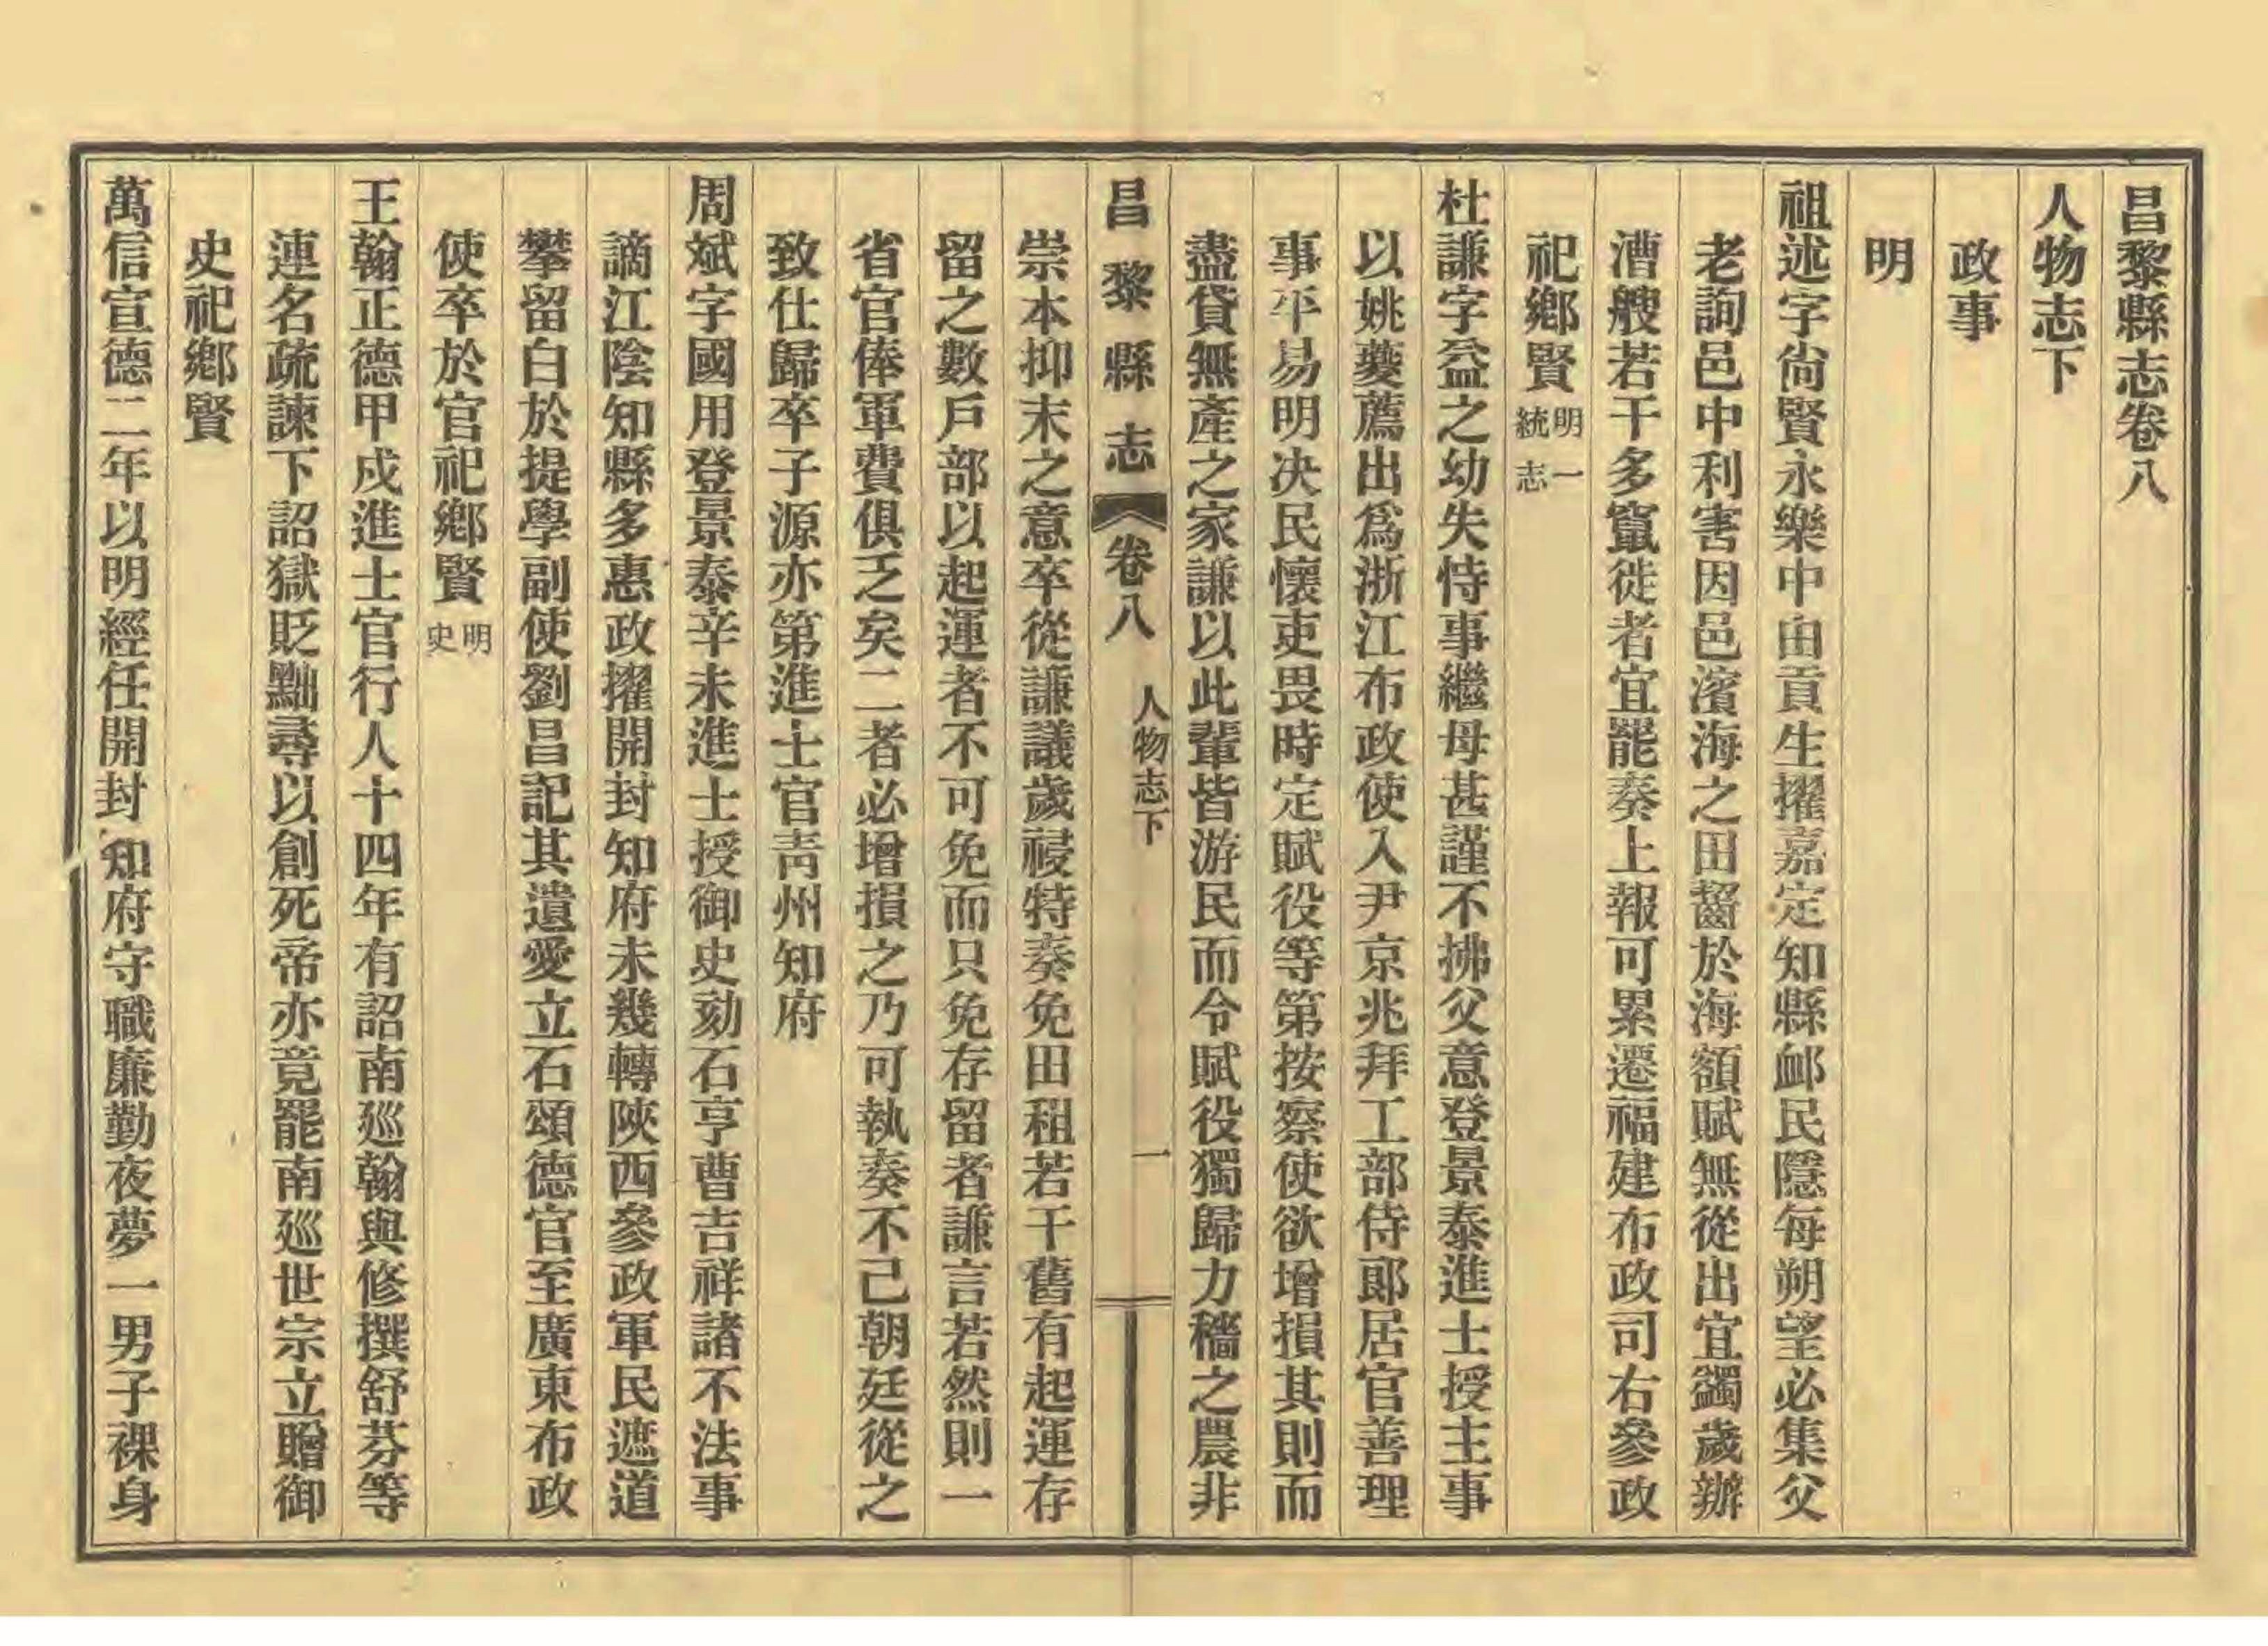 昌黎縣志卷八
人物志下
政事
明
祖述字尙賢永樂中由貢生擢嘉定知縣卹民隱每朔望必集父
老詢邑中利害因邑濱海之田齧於海額賦無從出宜蠲歲辦
漕艘若干多竄徙者宜罷奏上報可累遷福建布政司右參政
祀鄉賢明一統志
杜謙字益之幼失恃事繼母甚謹不拂父意登景泰進士授主事
以姚夔薦出爲浙江布政使入尹京兆拜工部侍郎居官善理
事平易明決民懷吏畏時定賦役等第按察使欲增損其則而
盡貸無產之家謙以此輩皆游民而令賦役獨歸力穡之農非
昌黎縣志 卷八 人物志下 一
崇本抑末之意卒從謙議歲祲特奏免田租若干舊有起運存
留之數戶部以起運者不可免而只免存留者謙言若然則一
省官俸軍費俱乏矣二者必增損之乃可執奏不已朝廷從之
致仕歸卒子源亦第進士官靑州知府
周斌字國用登景泰辛未進士授御史劾石亨曹吉祥諸不法事
謫江陰知縣多惠政擢開封知府未幾轉陝西參政軍民遮道
攀留白於提學副使劉昌記其遺愛立石頌德官至廣東布政
使卒於官祀鄉賢明史
王翰正德甲戌進士官行人十四年有詔南廵翰與修撰舒芬等
連名疏諫下詔獄貶黜尋以創死帝亦竟罷南廵世宗立贈御
史祀鄉賢
萬信宣德二年以明經任開封知府守職廉勤夜夢一男子裸身